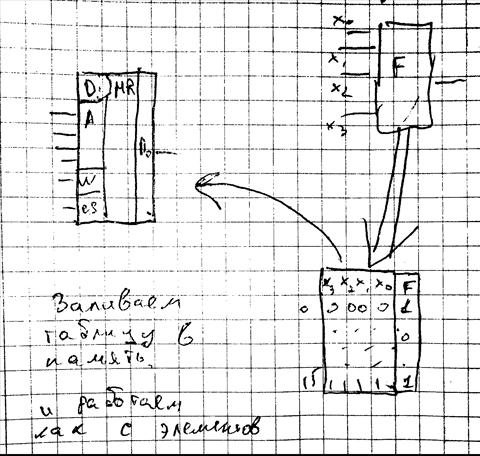 x₀
x₁
F
x₂
x₃
Dᵢ MR
A
D₀
W
CS
x₃ x₂ x₁ x₀ F
0 0 0 0 0 1
0
15 1 1 1 1 1
Заливаем
таблицу в
память,
и работаем
как с элементов